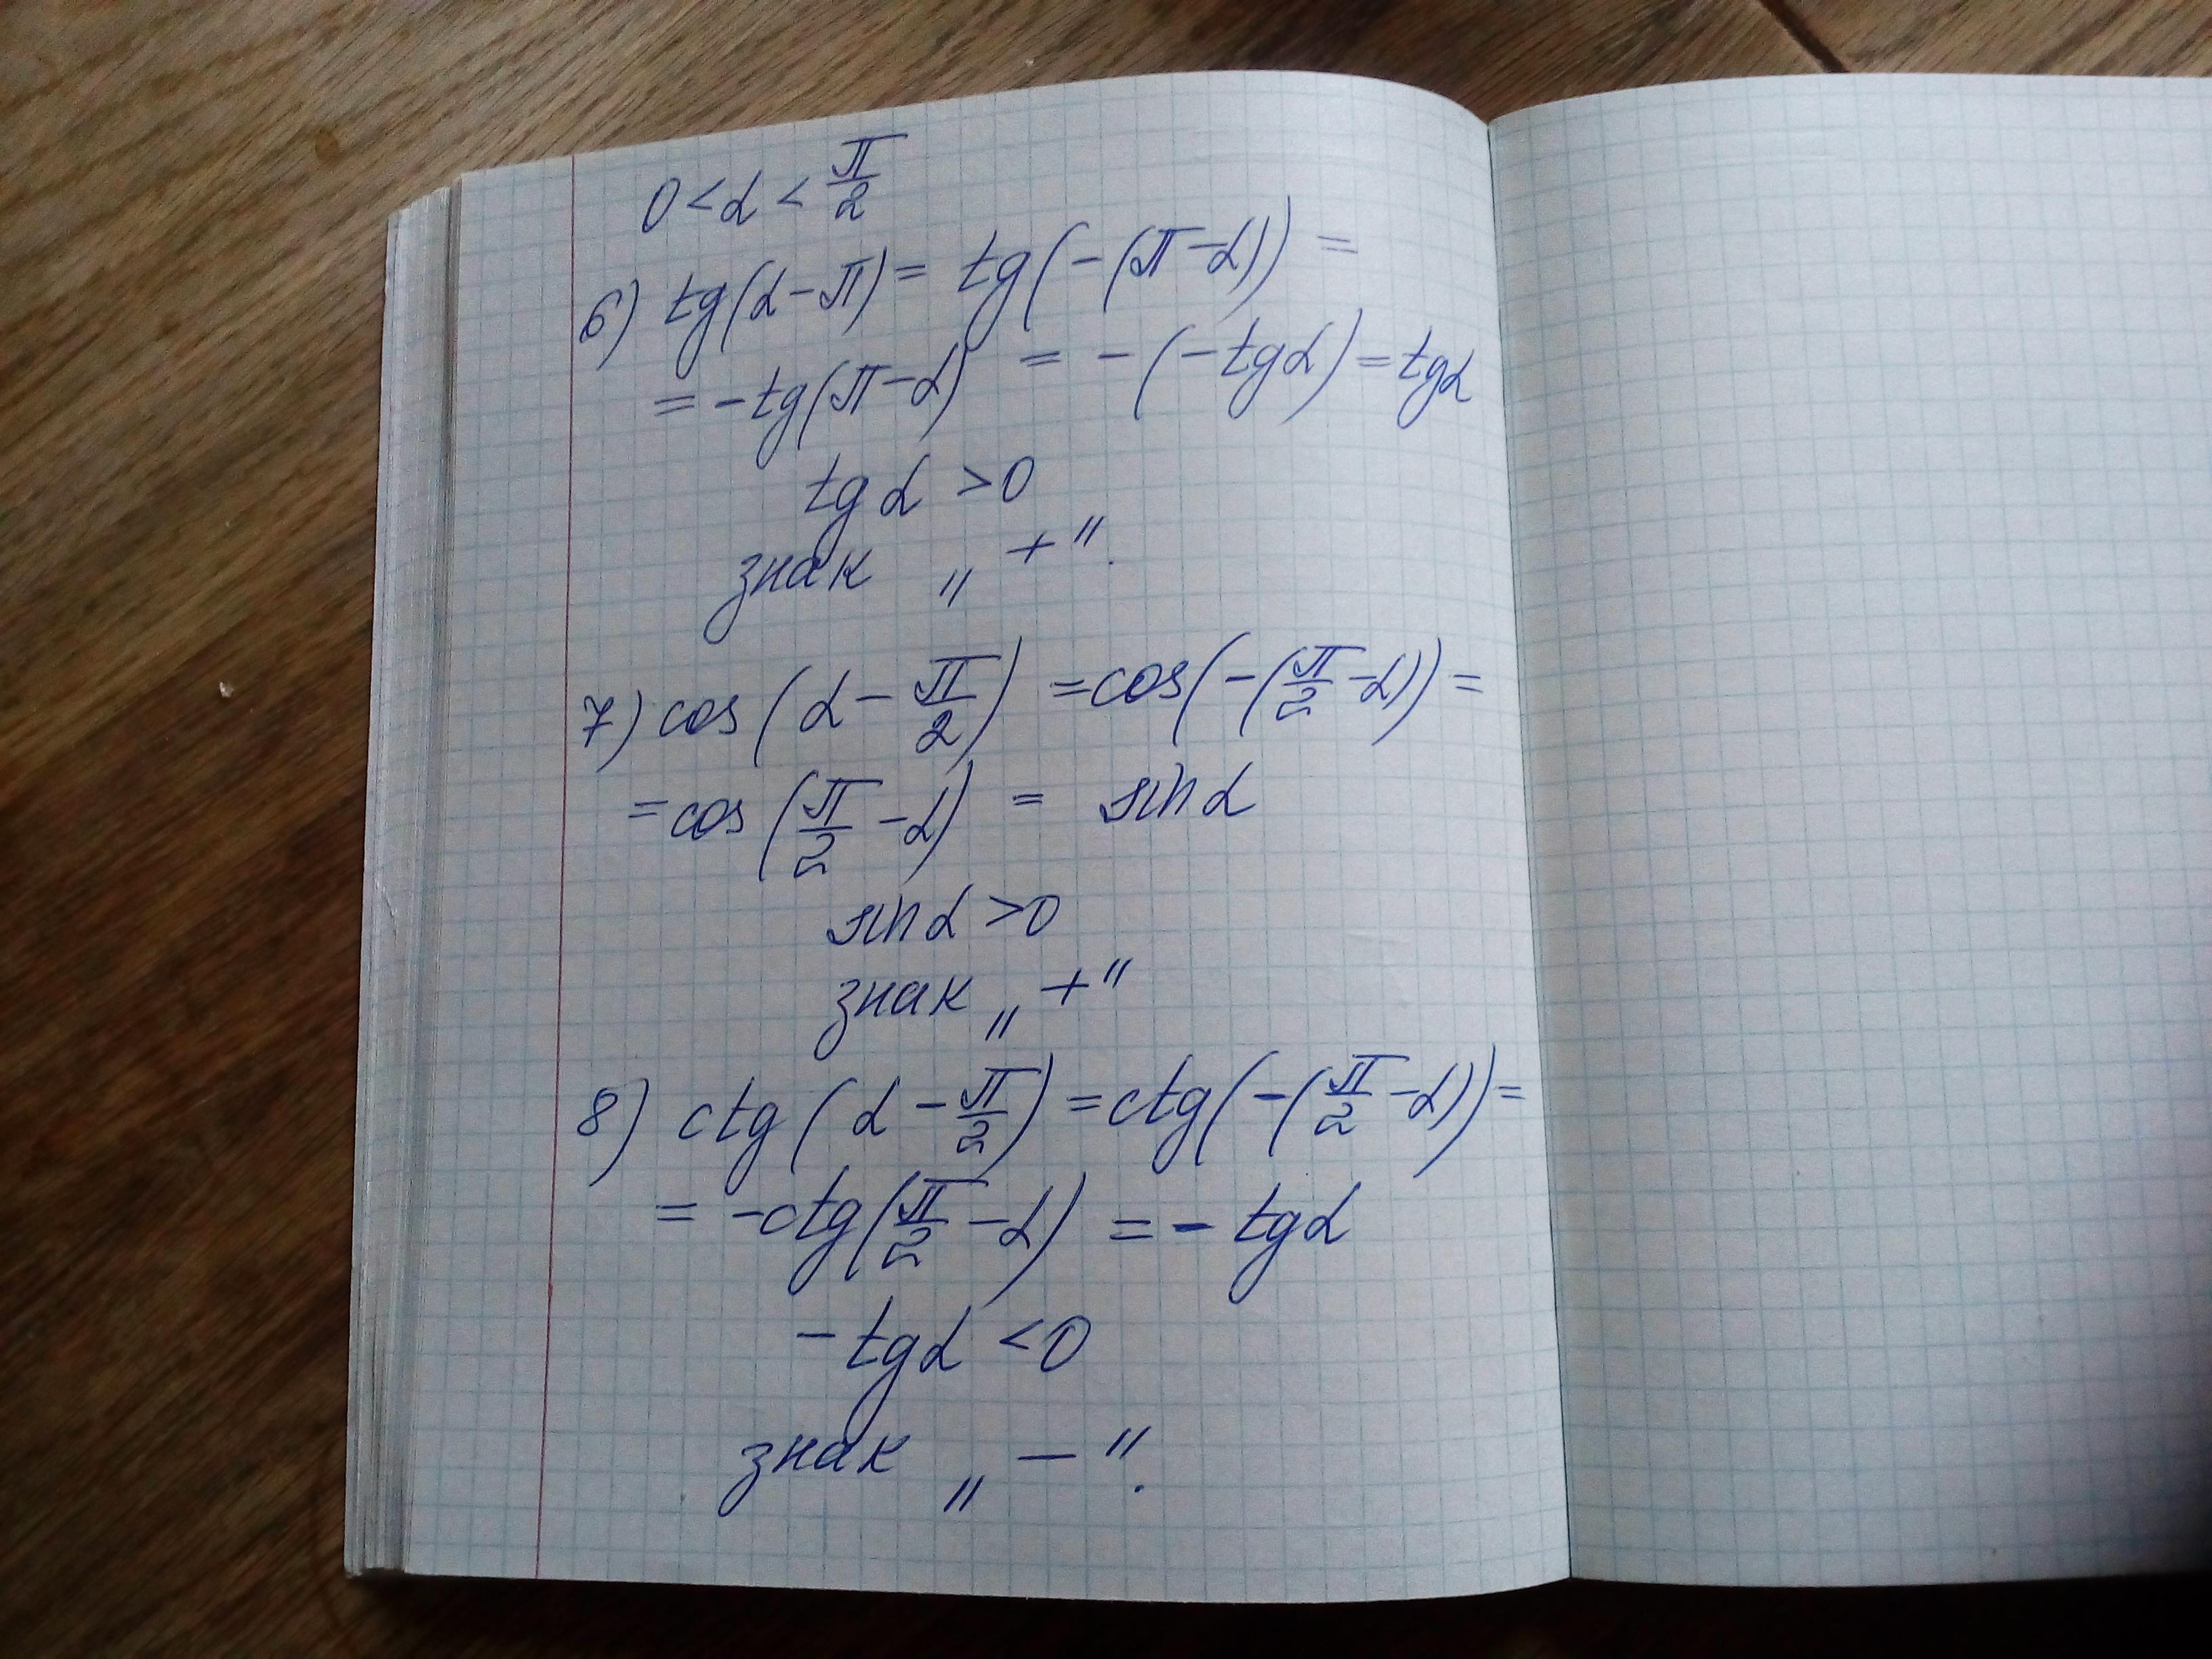 0 < α < π/2
6) tg(α − π) = tg(−(π − α)) =
= −tg(π − α) = −(−tgα) = tgα
tgα > 0
знак „+“.
7) cos(α − π/2) = cos(−(π/2 − α)) =
= cos(π/2 − α) = sinα
sinα > 0
знак „+“
8) ctg(α − π/2) = ctg(−(π/2 − α)) =
= −ctg(π/2 − α) = − tgα
−tgα < 0
знак „−“.